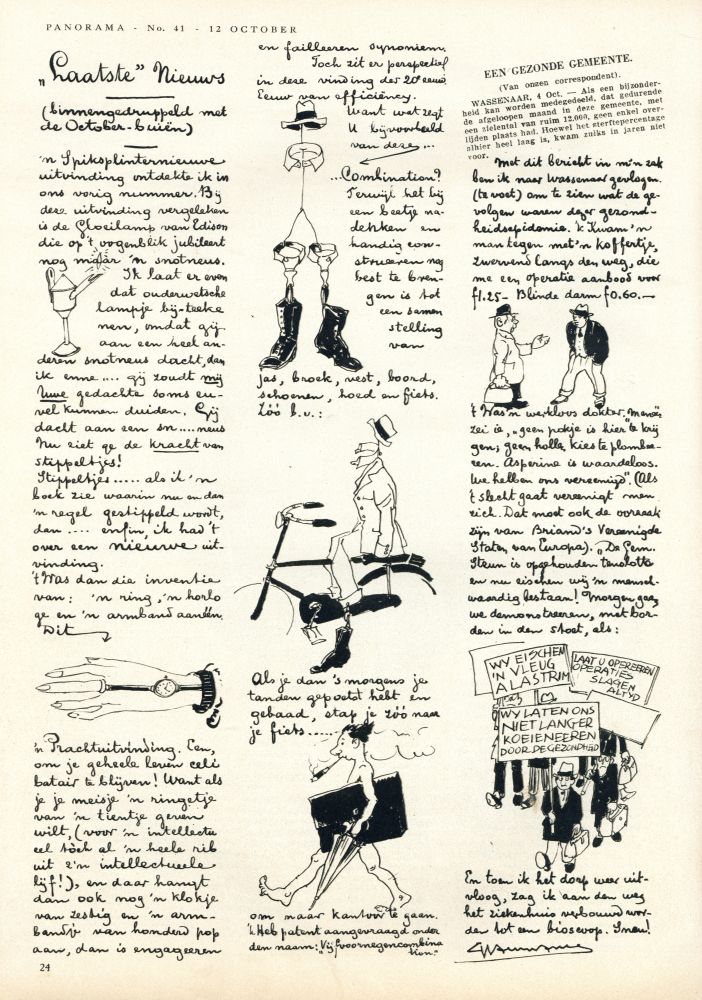 PANORAMA - No. 41 - 12 OCTOBER
„Laatste” Nieuws
(binnengedruppeld met
de October-buien)
'n Spiksplinternieuwe
uitvinding ontdekte ik in
ons vorig nummer. Bij
deze uitvinding vergeleken
is de Gloeilamp van Edison
die op 't oogenblik jubileert
nog maar 'n snotneus.
Ik laat er even
dat ouderwetsche
lampje bij-teeke
nen, omdat gij
aan een heel an-
deren snotneus dacht, dan
ik enne .... gij zoudt mij
Uwe gedachte soms eu-
vel kunnen duiden. Gij
dacht aan een sn....neus
Nu ziet ge de kracht van
stippeltjes!
Stippeltjes ..... als ik 'n
boek zie waarin nu en dan
'n regel gestippeld wordt,
dan .... enfin, ik had 't
over een nieuwe uit-
vinding.
't Was dan die inventie
van: 'n ring, 'n horlo
ge en 'n armband aanéén.
Dit
'n Prachtuitvinding. Een,
om je geheele leven celi
batair te blijven! Want als
je je meisje 'n ringetje
van 'n tientje geven
wilt, (voor 'n intellectu
eel tòch al 'n heele rib
uit z'n intellectueele
lijf!), en daar hangt
dan ook nog 'n klokje
van zestig en 'n arm-
bandje van honderd pop
aan, dan is engageeren
24
en failleeren synoniem.
Toch zit er perspectief
in deze vinding der 20e eeuw
Eeuw van efficiëncy.
Want wat zegt
U bijvoorbeeld
van deze ...
...Combination?
Terwijl het bij
een beetje na-
denken en
handig con-
strueeren nog
best te bren-
gen is tot
een samen
stelling
van
jas, broek, vest, boord,
schoenen, hoed en fiets.
Zóó b.v.:
Als je dan 's morgens je
tanden gepoetst hebt en
gebaad, stap je zóó naar
je fiets .....
om maar kantoor te gaan.
'k Heb patent aangevraagd onder
den naam: „Vijfvoornegencombina
tion.”
EEN GEZONDE GEMEENTE.
(Van onzen correspondent).
WASSENAAR, 4 Oct. — Als een bijzonder-
heid kan worden medegedeeld, dat gedurende
de afgeloopen maand in deze gemeente, met
een zielental van ruim 12.000, geen enkel over-
lijden plaats had. Hoewel het sterftepercentage
alhier heel laag is, kwam zulks in jaren niet
voor.
Met dit bericht in m'n zak
ben ik naar Wassenaar gevlogen.
(te voet) om te zien wat de ge-
volgen waren dezer gezond-
heidsepidemie. 'k Kwam 'n
man tegen met 'n koffertje,
zwervend langs den weg, die
me een operatie aanbood voor
f1.25 - Blinde darm f0.60.—
't Was 'n werkloos dokter. „Menee,”
zei ie, „geen pokje is hier te krij
gen; geen holle kies te plombee-
ren. Asperine is waardeloos.
We hebben ons vereenigd”. (Als
't slecht gaat vereenigt men
zich. Dat moet ook de oorzaak
zijn van Briand's Vereenigde
Staten van Europa). „De Gem.
Steun is opgehouden tenslotte
en nu eischen wij 'n mensch-
waardig bestaan! Morgen gaan
we demonstreeren, met bor-
den in den stoet, als:
WY EISCHEN
'N VLEUG
ALASTRIM
LAAT U OPEREEREN
OPERATIES
SLAGEN
ALTYD
WY LATEN ONS
NIET LANGER
KOEIENEEREN
DOOR DE GEZONDHEID
En toen ik het dorp weer uit-
vloog, zag ik aan den weg
het ziekenhuis verbouwd wor-
den tot een bioscoop. Sneu!